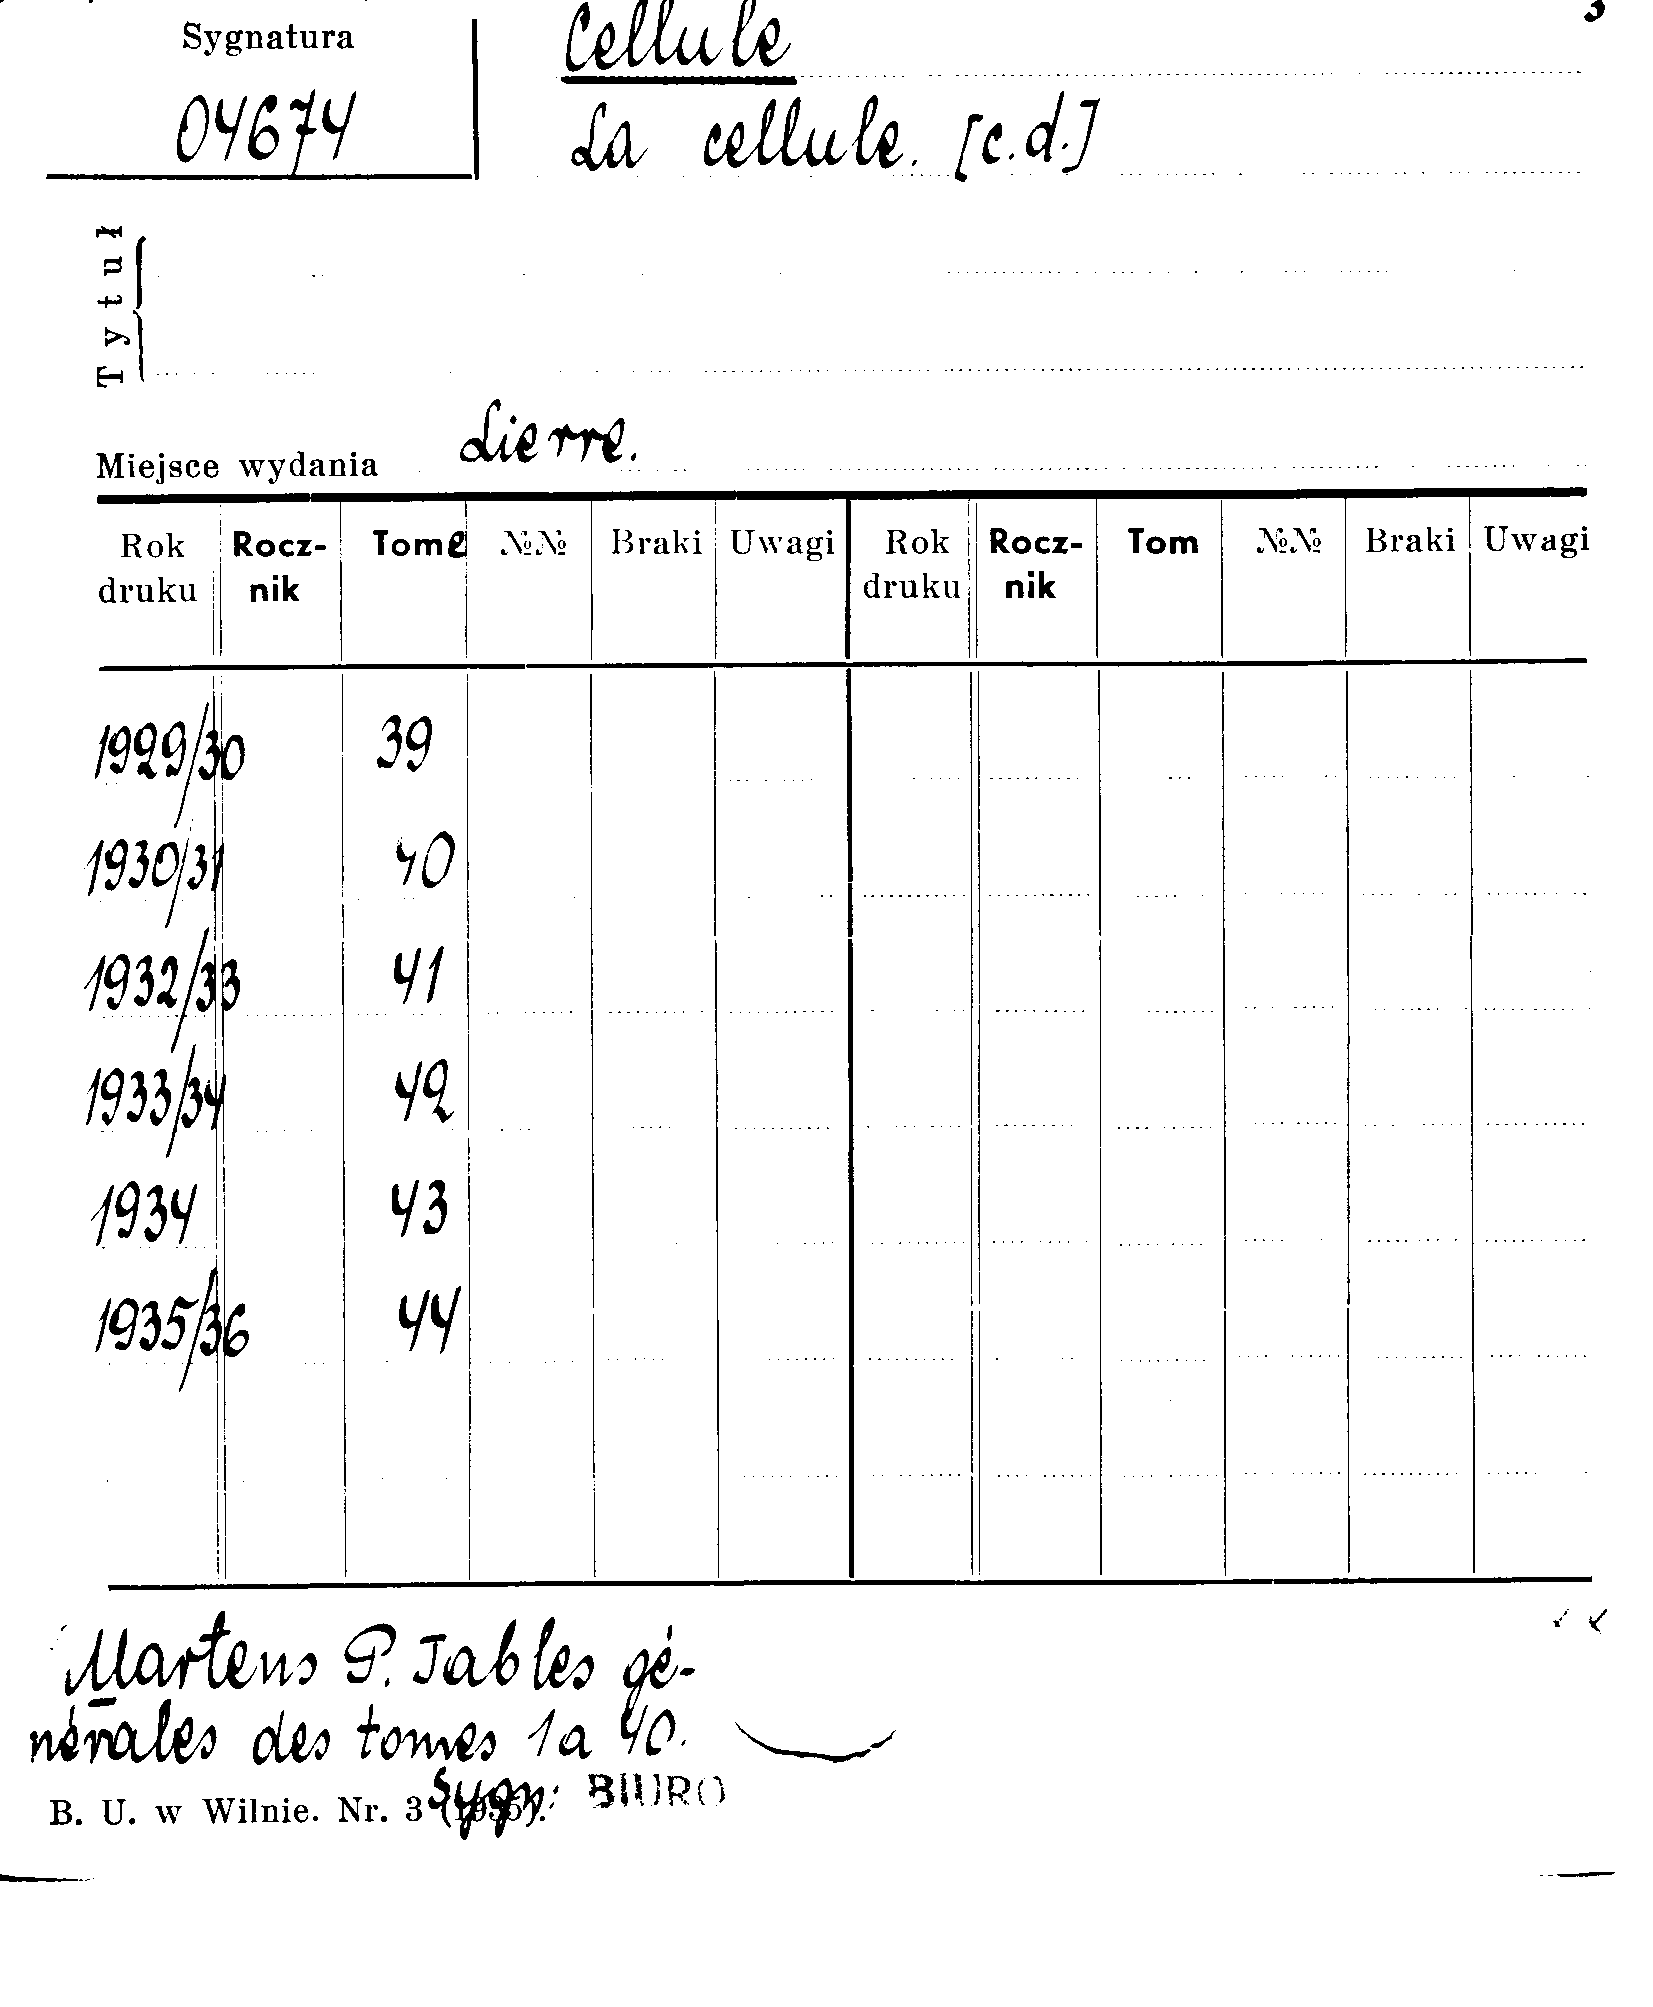 3
Sygnatura
04674
Cellule
La cellule. [c.d.]
Tytuł
Miejsce wydania Lierre.
Rok druku Rocz-nik Tome №№ Braki Uwagi Rok druku Rocz-nik Tom №№ Braki Uwagi
1929/30 39
1930/31 40
1932/33 41
1933/34 42
1934 43
1935/36 44
Martens P. Tables gé-
nérales des tomes 1 a 40.
Sygn: BIURO
B. U. w Wilnie. Nr. 3